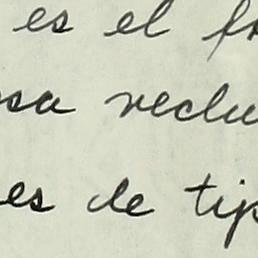 es el
sa reclu
es de tip